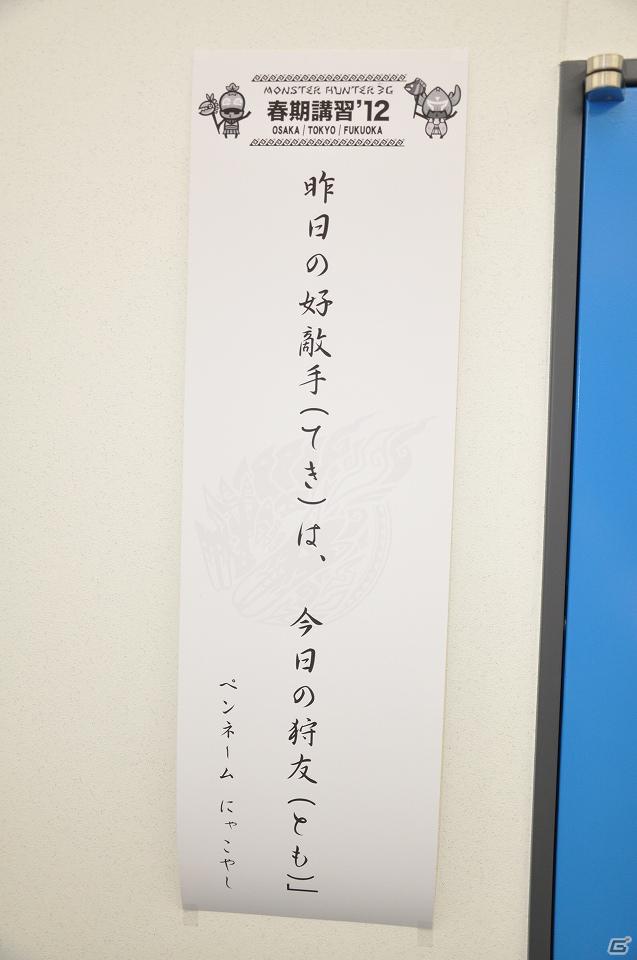 MONSTER HUNTER 3G
春期講習'12
OSAKA / TOKYO / FUKUOKA
昨日の好敵手(てき)は、 今日の狩友(とも)」
ペンネーム にゃこやし